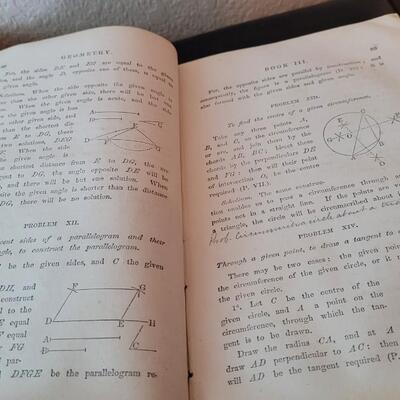 GEOMETRY.
For, the sides DE and EG are equal to the given
and the angle D, opposite one of them, is equal to
given angle.
Scholium. When the side opposite the given angle
less than the other given side, there will be
When the given angle is acute, and the side
other given side, and
than the shortest dis-
from E to DG, there
two solutions, DEG
DEF. When the side
the given angle is
the shortest distance from E to DG, the
to DG, the angle opposite DE will be
and there will be but one solution. When
opposite the given angle is shorter than the distance
DG, there will be no solution.
PROBLEM XII.
sides of a parallelogram and their
angle, to construct the parallelogram.
be the given sides, and C the given
DH, and
construct
to the
equal
F equal
FG
par-
DFGE be the parallelogram re-
BOOK III.
For, the opposite sides are parallel by construction;
consequently, the figure is a parallelogram (D. 28): it is
also formed with the given sides and given angle.
PROBLEM XIII.
To find the centre of a given circumference.
Take any three points A,
B, and C, on the circumfe-
rence, and join them by the
chords AB, BC: bisect these
chords by the perpendiculars DE
and FG: then will their point
of intersection O, be the centre
required (P. VII.).
Scholium.
enables us to pass a circumference through any
points not in a straight line. If the points are
a triangle, the circle will be circumscribed about it.
Prob. Circumscribe circle about a
PROBLEM XIV.
Through a given point, to draw a tangent to a
There may be two cases: the given point
the circumference of the given circle, or it
the given circle.
1°. Let C be the centre of the
given circle, and A a point on the
circumference, through which the tan-
gent is to be drawn.
Draw the radius CA, and at A
draw AD perpendicular to AC: then
will AD be the tangent required (P.